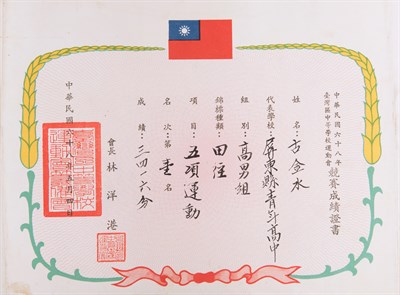 中華民國六十八年
臺灣區中等學校運動會
競賽成績證書
姓名：古金水
代表學校：屏東縣青年高中
組別：高男組
錦標種類：田徑
項目：五項運動
名次：第壹名
成績：三四一六分
會長 林洋港
中華民國六十八年五月四日